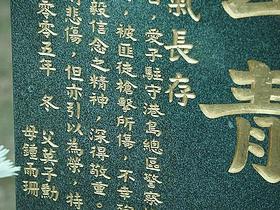 青
氣長存
愛子駐守港島總區警察
被匪徒槍擊所傷，不幸
毅信念之精神，深得敬重。
悲傷，但亦引以為榮，特
零零五年　冬　父莫子勳
母鍾雨珊